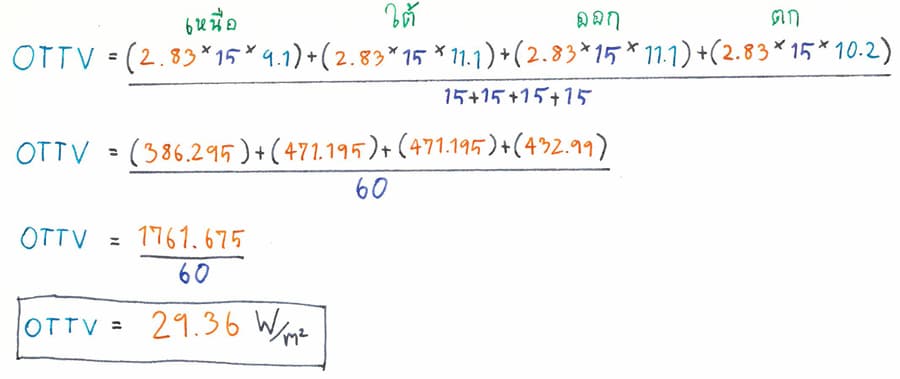 เหนือ ใต้ ออก ตก
OTTV = (2.83*15*9.1)+(2.83*15*11.1)+(2.83*15*11.1)+(2.83*15*10.2)
15+15+15+15
OTTV = (386.295)+(471.195)+(471.195)+(432.99)
60
OTTV = 1761.675
60
OTTV = 29.36 W/m²